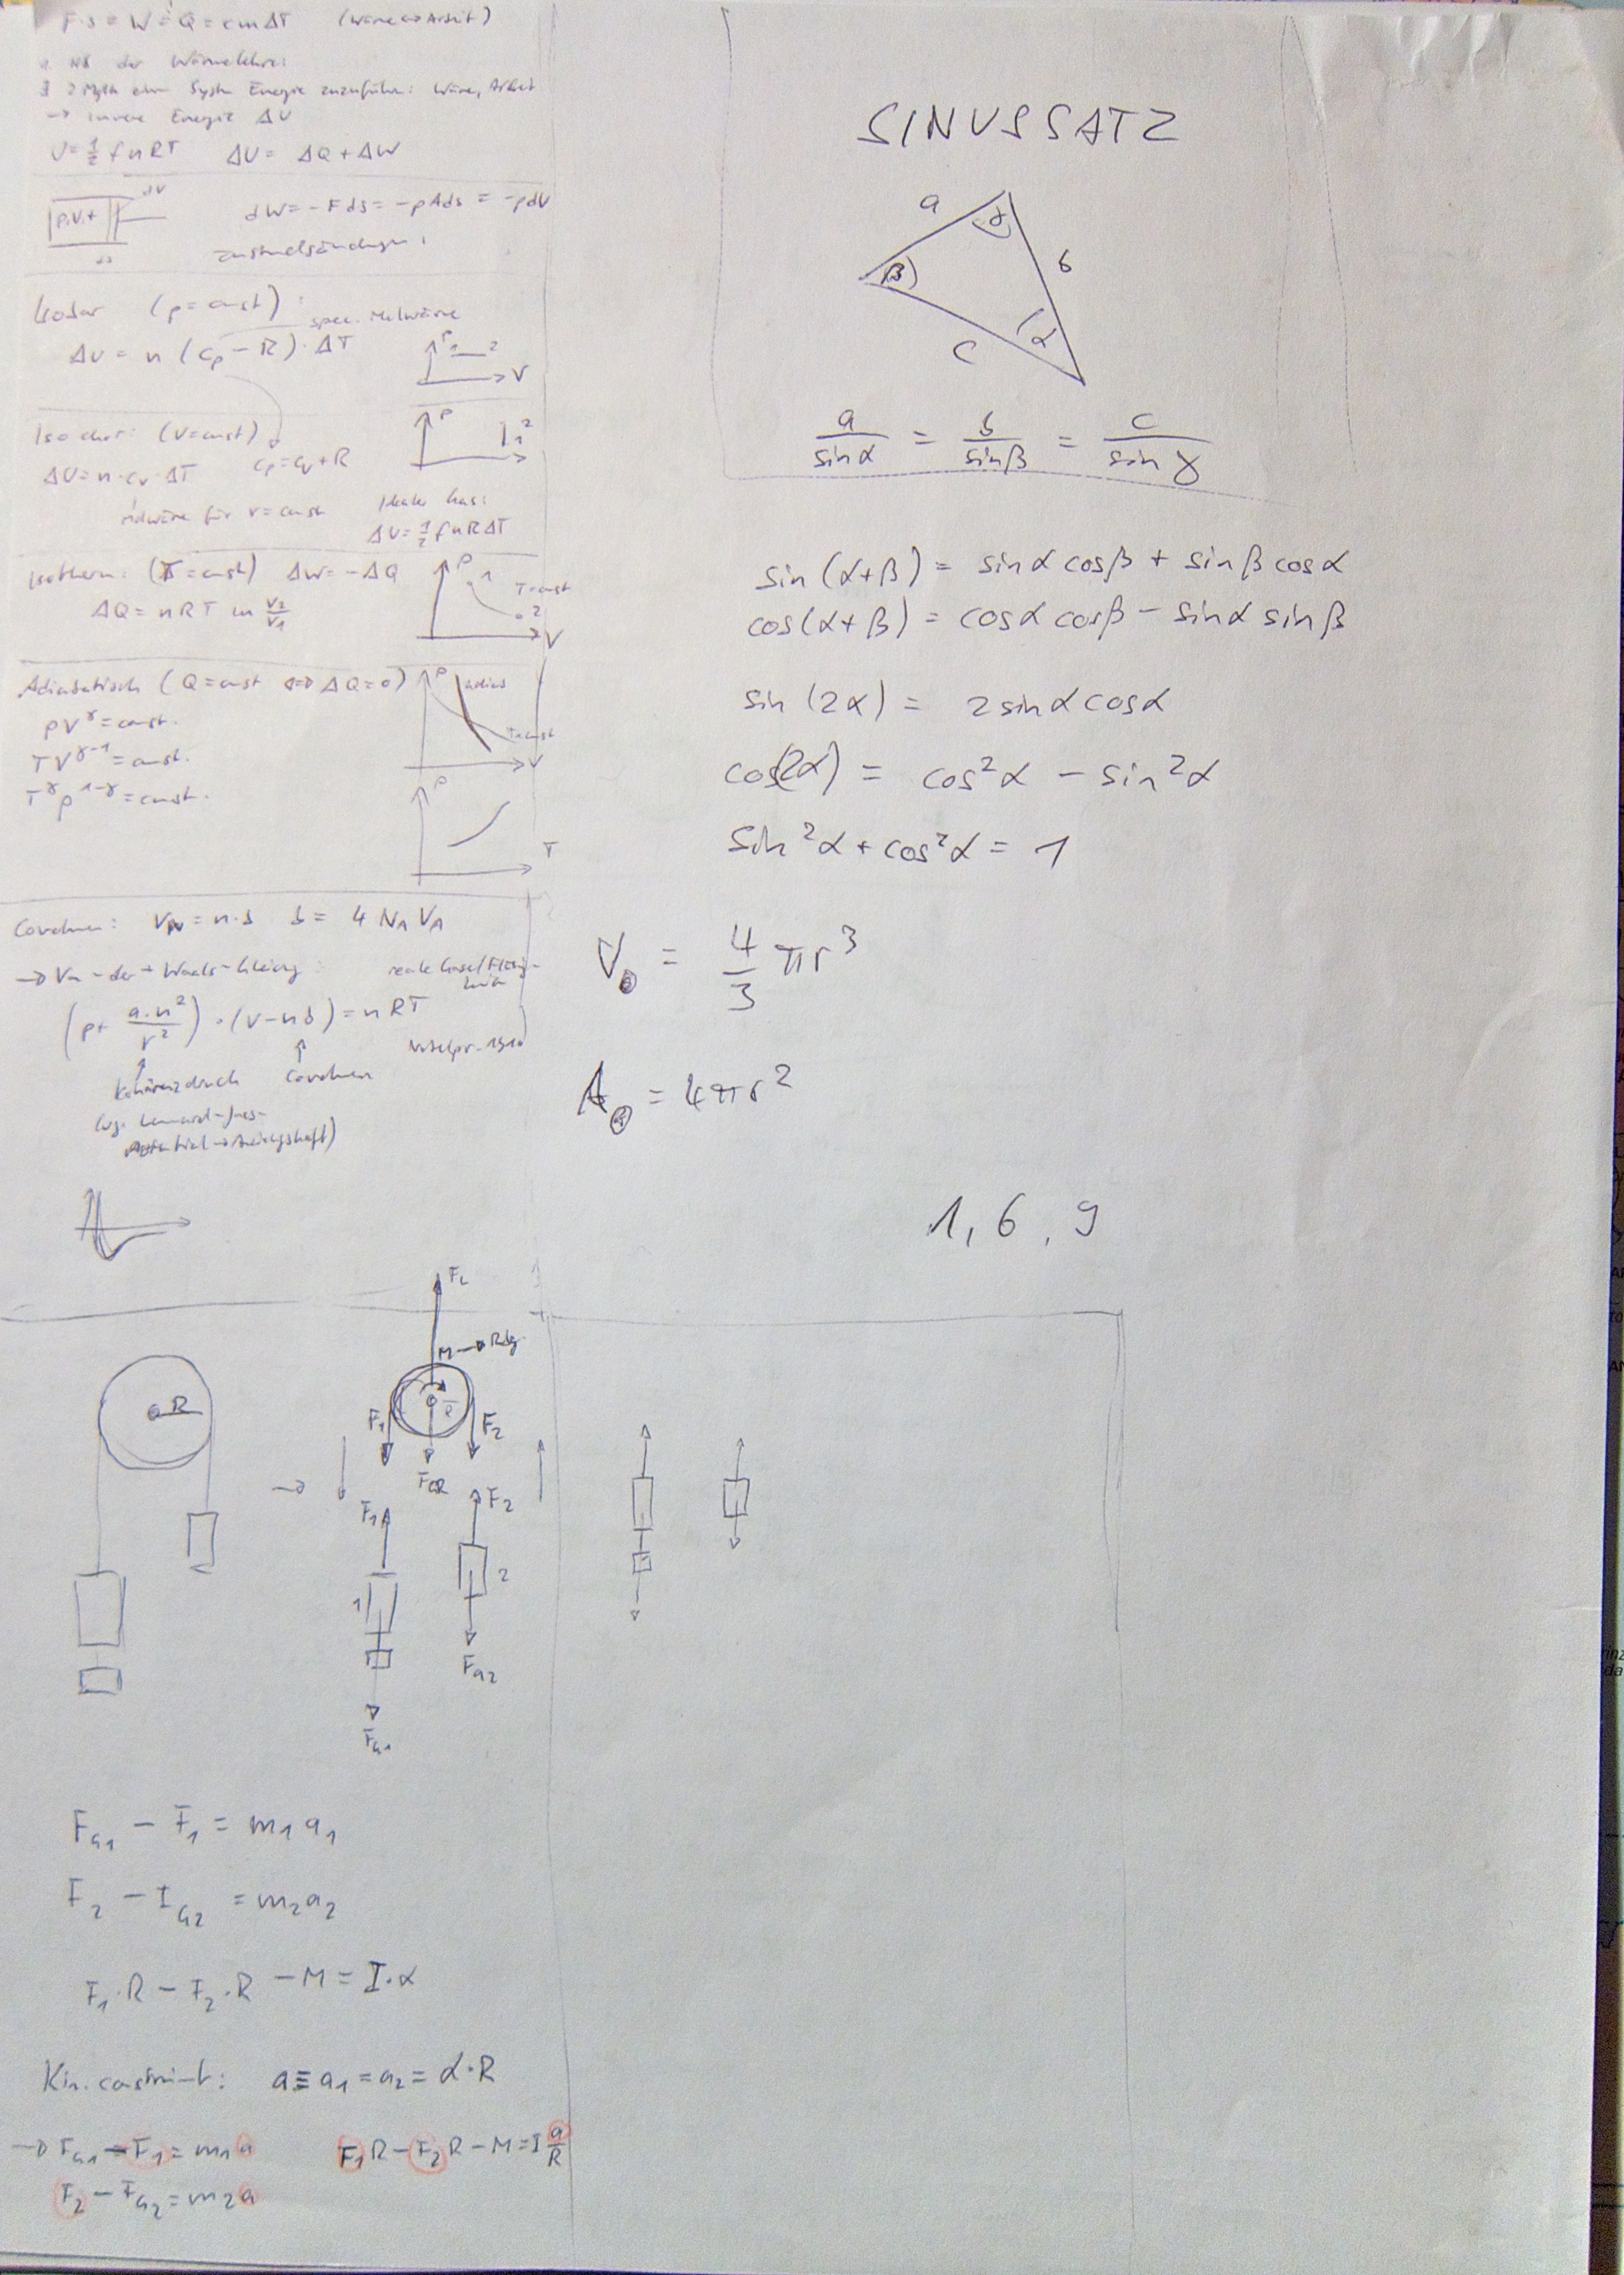 F·s = W = Q = cmΔT (Wärme↔Arbeit)
1. HS der Wärmelehre:
Energie zuzuführen: Wärme, Arbeit
→ innere Energie ΔU
U = 1/2 f n R T ΔU = ΔQ + ΔW
p,V,T
dV
ds
dW = -Fds = -pAds = -pdV
Zustandsänderungen:
Isobar (p = const):
spez. Molwärme
ΔU = n (cp - R) · ΔT
1 2
V
Isochor: (V = const)
p
1 2
ΔU = n · cv · ΔT cp = cv + R
Molwäre für V = const
Ideales Gas:
ΔU = 1/2 f n R ΔT
Isotherm: (T = const) ΔW = -ΔQ
ΔQ = n R T ln V2/V1
p
1
T = const
2
V
Adiabatisch (Q = const ⇔ ΔQ = 0)
pV^γ = const.
TV^γ-1 = const.
T^γ p^1-γ = const.
p
T=const
V
p
T
Covolumen: n·b b = 4 NA VA
→ Van-der-Waals-Gleichung:
(p + a·n²/V²) · (V - nb) = n R T
Nobelpr. 1910
Kohäsionsdruck Covolumen
(vgl. Lennard-Jones-
Potential → Anziehungskraft)
SINUSSATZ
a
γ
β
b
c
α
a/sinα = b/sinβ = c/sin γ
sin (α+β) = sinα cosβ + sinβ cosα
cos(α+β) = cosα cosβ - sinα sinβ
sin (2α) = 2 sinα cosα
cos(2α) = cos²α - sin²α
sin²α + cos²α = 1
V = 4/3 πr³
A = 4πr²
1, 6, 9
FL
M →
R
R
F1
F2
FGR
F1
F2
1
2
FG2
FG1
FG1 - F1 = m1 a1
F2 - FG2 = m2 a2
F1·R - F2·R - M = I·α
Kin. constraint: a ≡ a1 = a2 = α·R
→ FG1 - F1 = m1 a F1 R - F2 R - M = I a/R
F2 - FG2 = m2 a